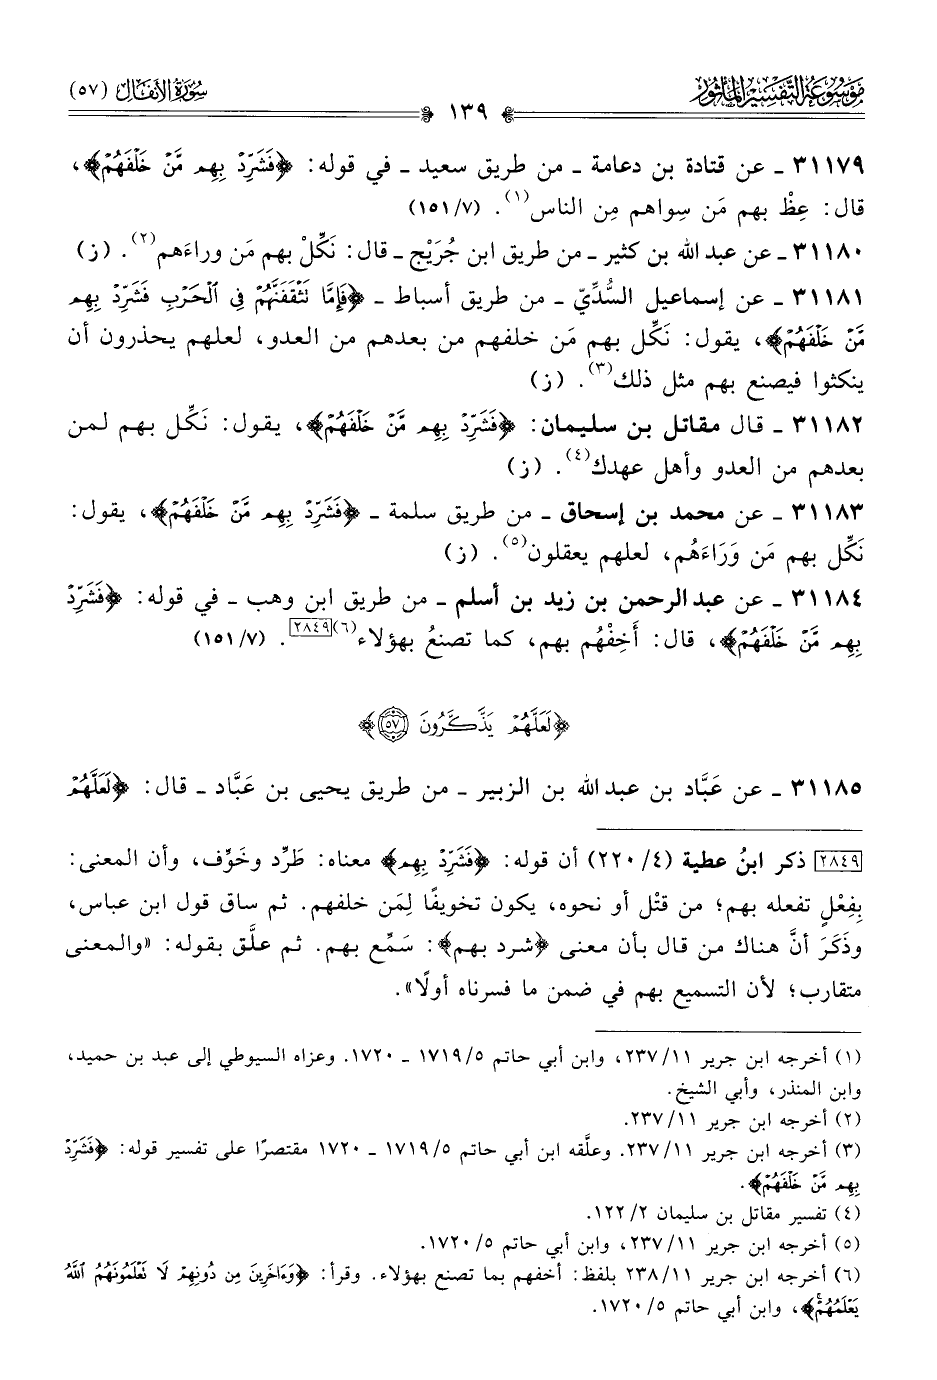 موسوعة التفسير المأثور
سورة الأنفال (٥٧)
١٣٩
٣١١٧٩ ـ عن قتادة بن دعامة ـ من طريق سعيد ـ في قوله: ﴿فَشَرِّدْ بِهِم مَّنْ خَلْفَهُمْ﴾،
قال: عِظْ بهم مَن سِواهم مِن الناس(١). (٧/ ١٥١)
٣١١٨٠ ـ عن عبد الله بن كثير ـ من طريق ابن جُرَيْج ـ قال: نَكِّلْ بهم مَن وراءَهم(٢). (ز)
٣١١٨١ ـ عن إسماعيل السُّدِّيّ ـ من طريق أسباط ـ ﴿فَإِمَّا تَثْقَفَنَّهُمْ فِي ٱلْحَرْبِ فَشَرِّدْ بِهِم
مَّنْ خَلْفَهُمْ﴾، يقول: نَكِّل بهم مَن خلفهم من بعدهم من العدو، لعلهم يحذرون أن
ينكثوا فيصنع بهم مثل ذلك(٣). (ز)
٣١١٨٢ ـ قال مقاتل بن سليمان: ﴿فَشَرِّدْ بِهِم مَّنْ خَلْفَهُمْ﴾، يقول: نَكِّل بهم لمن
بعدهم من العدو وأهل عهدك(٤). (ز)
٣١١٨٣ ـ عن محمد بن إسحاق ـ من طريق سلمة ـ ﴿فَشَرِّدْ بِهِم مَّنْ خَلْفَهُمْ﴾، يقول:
نَكِّل بهم مَن وَرَاءَهُم، لعلهم يعقلون(٥). (ز)
٣١١٨٤ ـ عن عبد الرحمن بن زيد بن أسلم ـ من طريق ابن وهب ـ في قوله: ﴿فَشَرِّدْ
بِهِم مَّنْ خَلْفَهُمْ﴾، قال: أَخِفْهُم بهم، كما تصنعُ بهؤلاء(٦)[٢٨٤٩]. (٧/ ١٥١)
﴿لَعَلَّهُمْ يَذَّكَّرُونَ ٥٧﴾
٣١١٨٥ ـ عن عَبَّاد بن عبد الله بن الزبير ـ من طريق يحيى بن عَبَّاد ـ قال: ﴿لَعَلَّهُمْ
[٢٨٤٩] ذكر ابنُ عطية (٤/ ٢٢٠) أن قوله: ﴿فَشَرِّدْ بِهِم﴾ معناه: طَرِّد وخَوِّف، وأن المعنى:
بِفِعْلٍ تفعله بهم؛ من قتْل أو نحوه، يكون تخويفًا لِمَن خلفهم. ثم ساق قول ابن عباس،
وذَكَرَ أنَّ هناك من قال بأن معنى ﴿شرد بهم﴾: سَمِّع بهم. ثم علَّق بقوله: «والمعنى
متقارب؛ لأن التسميع بهم في ضمن ما فسرناه أولًا».
(١) أخرجه ابن جرير ١١/ ٢٣٧، وابن أبي حاتم ٥/ ١٧١٩ ـ ١٧٢٠. وعزاه السيوطي إلى عبد بن حميد،
وابن المنذر، وأبي الشيخ.
(٢) أخرجه ابن جرير ١١/ ٢٣٧.
(٣) أخرجه ابن جرير ١١/ ٢٣٧. وعلَّقه ابن أبي حاتم ٥/ ١٧١٩ ـ ١٧٢٠ مقتصرًا على تفسير قوله: ﴿فَشَرِّدْ
بِهِم مَّنْ خَلْفَهُمْ﴾.
(٤) تفسير مقاتل بن سليمان ٢/ ١٢٢.
(٥) أخرجه ابن جرير ١١/ ٢٣٧، وابن أبي حاتم ٥/ ١٧٢٠.
(٦) أخرجه ابن جرير ١١/ ٢٣٨ بلفظ: أخفهم بما تصنع بهؤلاء. وقرأ: ﴿وَءَاخَرِينَ مِن دُونِهِمْ لَا تَعْلَمُونَهُمُ ٱللَّهُ
يَعْلَمُهُمْ﴾، وابن أبي حاتم ٥/ ١٧٢٠.